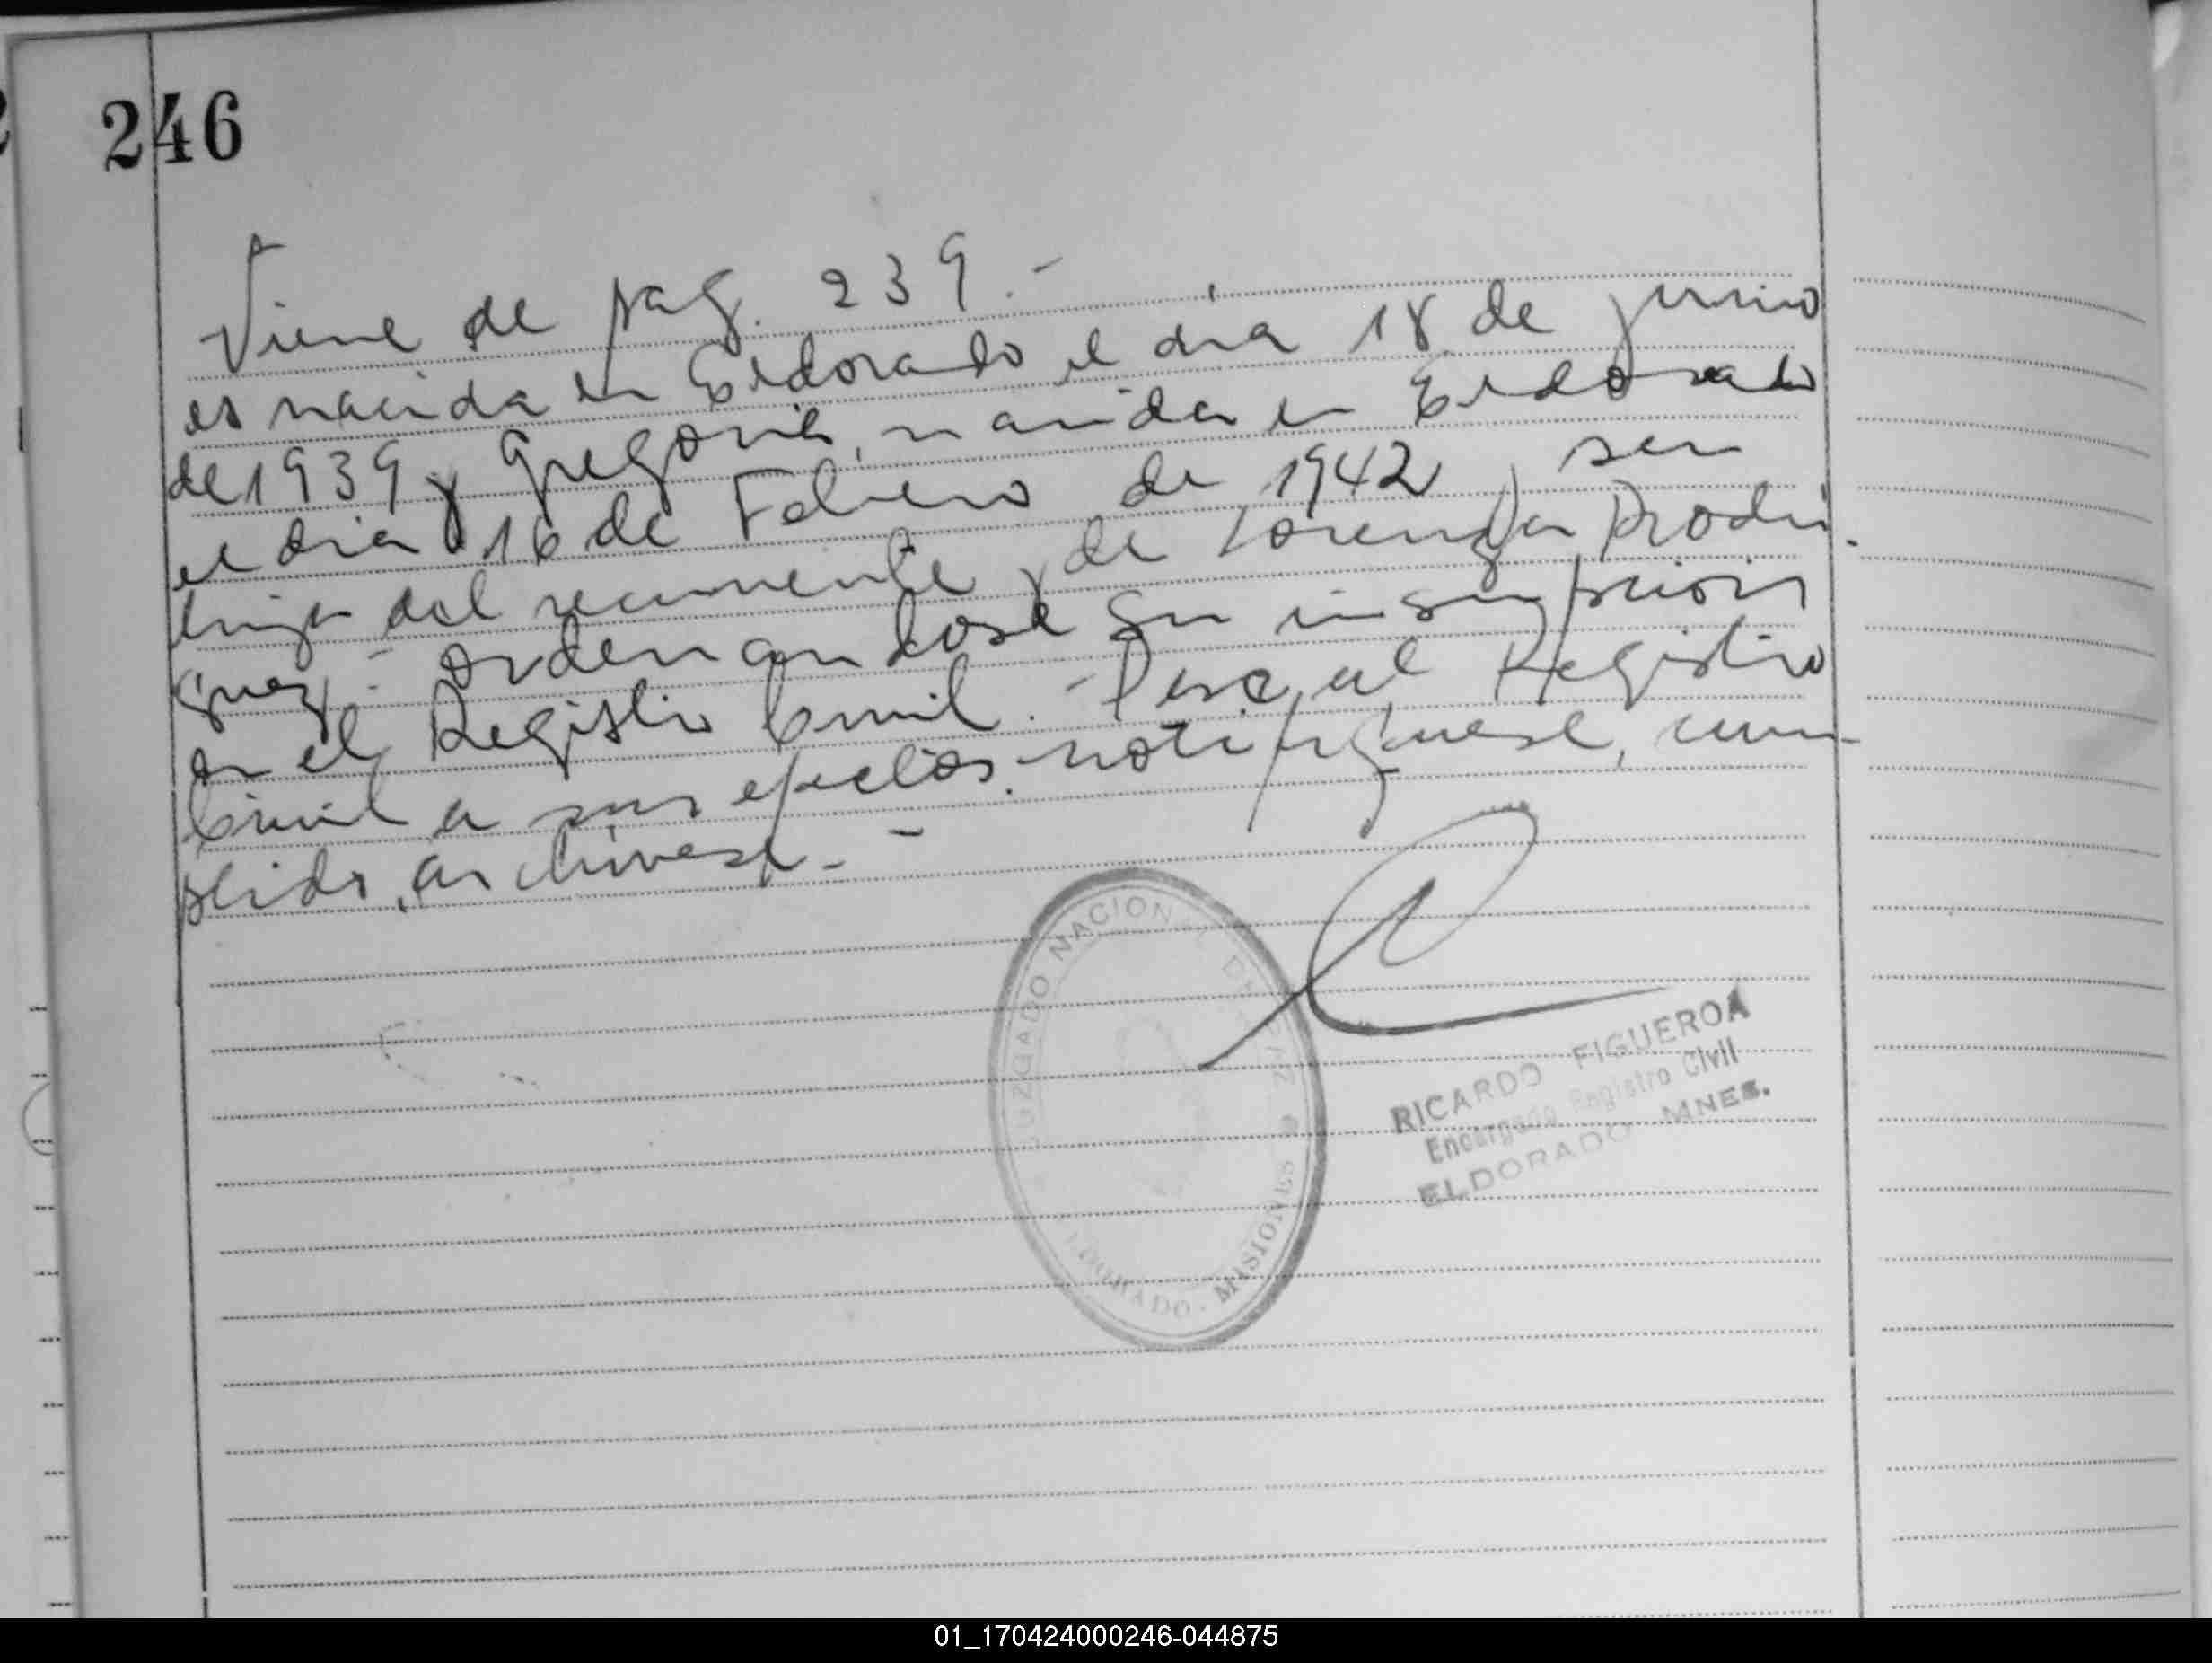 246
Viene de pag. 239.-
es nacida en Eldorado el dia 18 de junio
de 1939 y Gregoria, nacida en Eldorado
el dia 16 de Febrero de 1942, sen
hija del recurrente y de Lorenza Rodri-
guez.- Ordenandose su inscripcion
en el Registro Civil.- Pase al Registro
Civil a sus efectos. notifiquese, cum-
plido, archivese.-
JUZGADO NACIONAL DE PAZ
ELDORADO - MISIONES
RICARDO FIGUEROA
Encargado Registro Civil
ELDORADO MNES.
01_170424000246-044875